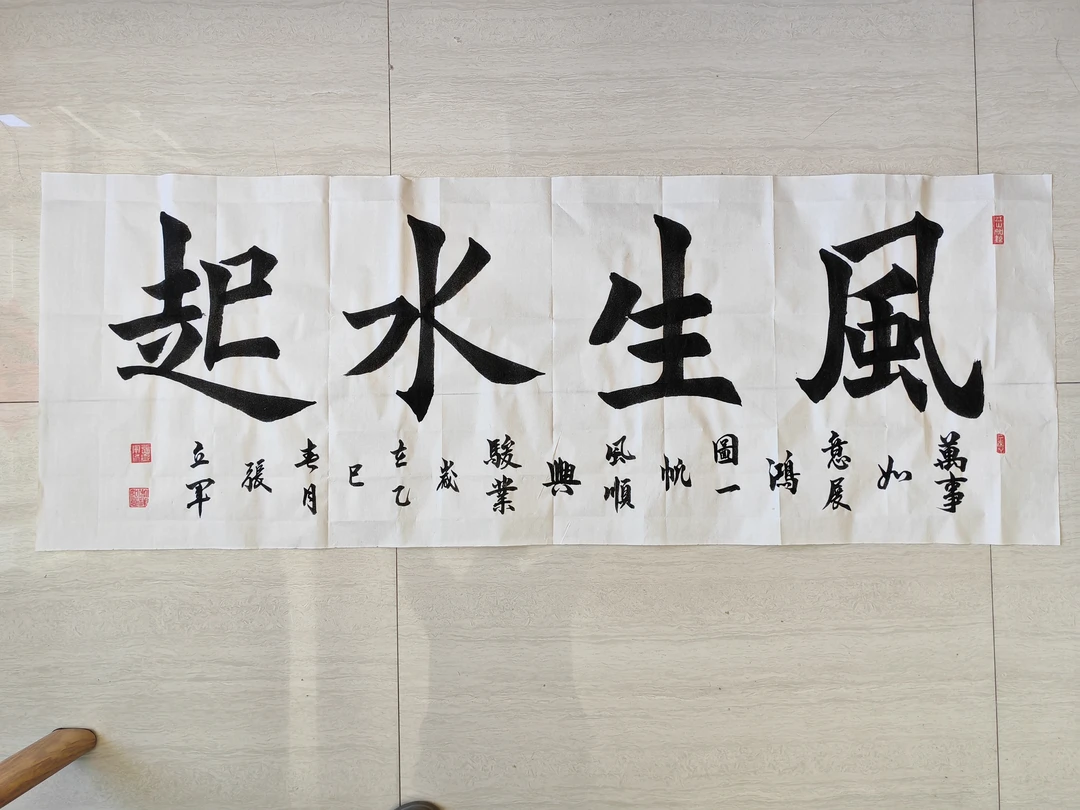 風生水起
萬事
如
意展
鴻
圖一
帆
風順
興
駿業
歲
在乙
巳
春月
張
立軍